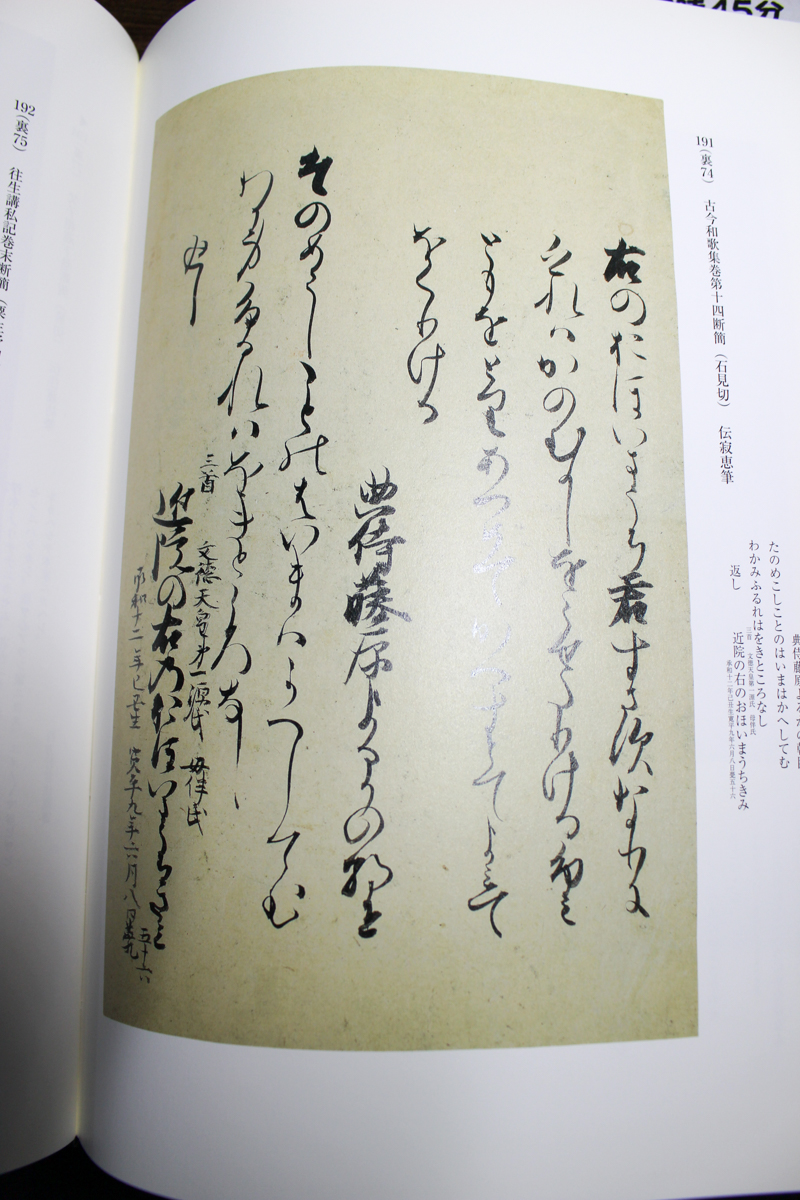 45分
典侍藤原よるかの
たのめこしことのはいまはかへしてむ
わかみふるれはをきところなし
返し
三首 文徳天皇第一源氏 母伴氏
近院の右のおほいまうちきみ
承和十二年己丑生寛平九年六月八日薨五十六
191(裏74) 古今和歌集巻第十四断簡(石見切) 伝寂恵筆
右のおほいまうち君すますなりに
けれはかのむかしをこせたりけるふみ
ともをとりあつめてかへすとてよみて
をくりける
典侍藤原よるかの朝臣
たのめこしことのはいまはかへしてむ
わか身ふるれはをきところなし
返し
三首 文徳天皇第一源氏 母伴氏
近院の右のおほいまうちきみ
承和十二年己丑生 寛平九年六月八日薨五十六
192(裏75) 往生講私記巻末断簡